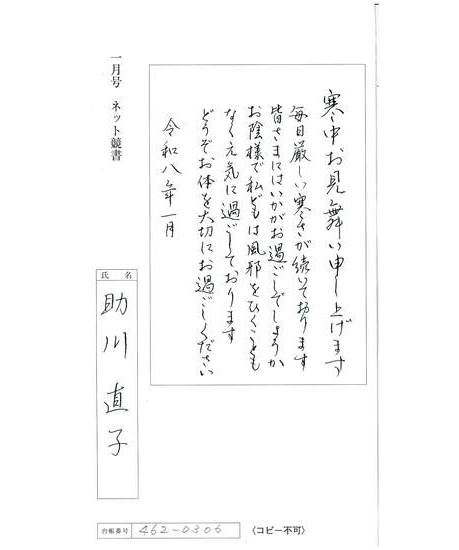 寒中お見舞い申し上げます
毎日厳しい寒さが続いて居ります
皆さまにはいかがお過ごしでしょうか
お陰様で私どもは風邪をひくことも
なく元気に過ごしております
どうぞお体を大切にお過ごしください
令和八年一月
一月号 ネット競書
氏名
助川直子
台帳番号 462-0306
〈コピー不可〉